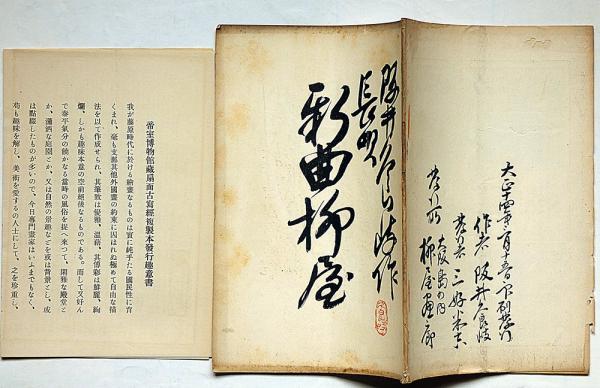 阪井久良岐作
長唄
新曲柳屋
大正十四年二月十五日印刷発行
作者 阪井久良岐
発行者 三好米吉
発行所 大阪島の内
柳屋画廊
帝室博物館蔵扇面古写経複製本発行趣意書
我が藤原時代に於ける絵画なるものは実に純乎たる国民性に育
くまれ、毫も支那其他外国画の約束に囚はれぬ極めて自由な描
法を以て作成せられ、其筆致は優雅、温藉、其傅彩は鮮麗、絢
爛、しかも趣味本意の空前絶後なるものである。而して又好ん
で泰平気分の饒かなる当時の風俗を捉へ来つて、閑雅な殿堂と
か、瀟洒な庭園とか、又は自然の景趣などを或は背景とし、或
は点綴したものが多いので、今日専門画家はいふまでもなく、
苟も趣味を解し、美術を愛するの人士にして、之を珍重し、